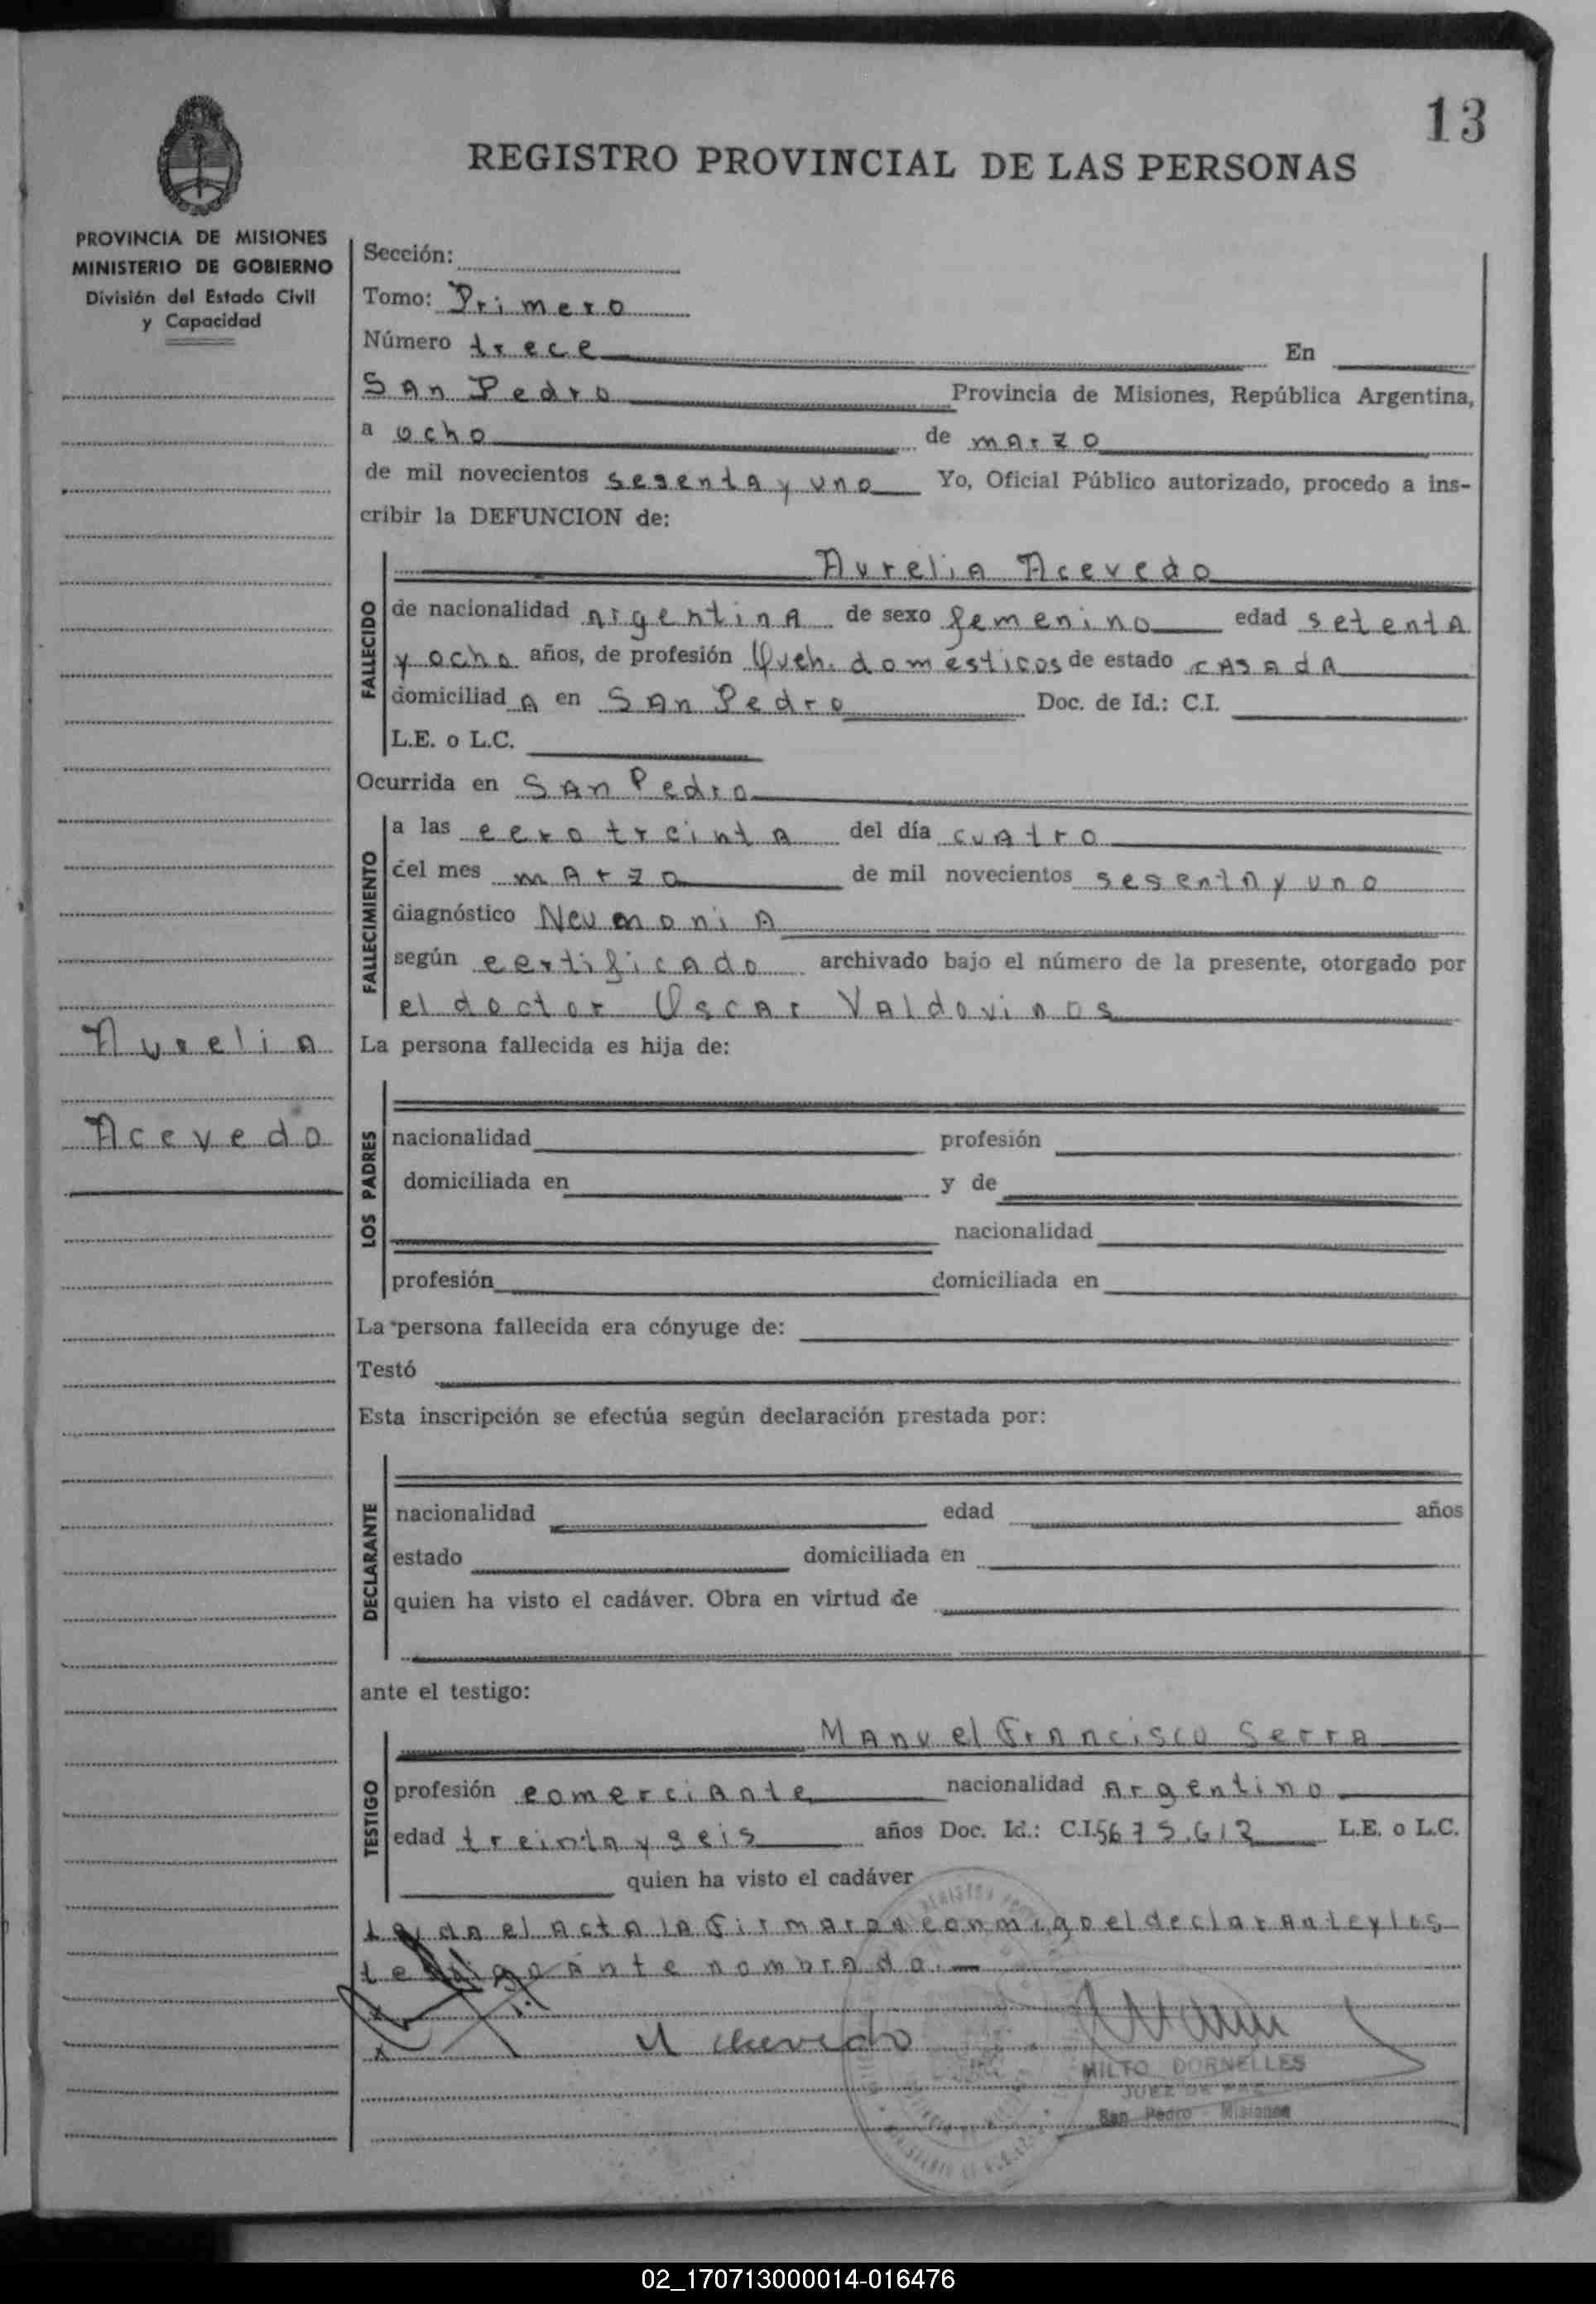 13
REGISTRO PROVINCIAL DE LAS PERSONAS
PROVINCIA DE MISIONES
MINISTERIO DE GOBIERNO
División del Estado Civil
y Capacidad
Sección:
Tomo: Primero
Número trece En
San Pedro Provincia de Misiones, República Argentina,
a ocho de marzo
de mil novecientos sesenta y uno Yo, Oficial Público autorizado, procedo a ins-
cribir la DEFUNCION de:
FALLECIDO
Aurelia Acevedo
de nacionalidad argentina de sexo femenino edad setenta
y ocho años, de profesión Queh. domesticos de estado casada
domiciliad a en San Pedro Doc. de Id.: C.I.
L.E. o L.C.
Ocurrida en San Pedro
FALLECIMIENTO
a las cero treinta del día cuatro
del mes marzo de mil novecientos sesenta y uno
diagnóstico Neumonia
según certificado archivado bajo el número de la presente, otorgado por
el doctor Oscar Valdovinos
Aurelia
Acevedo
La persona fallecida es hija de:
LOS PADRES
nacionalidad profesión
domiciliada en y de
nacionalidad
profesión domiciliada en
La persona fallecida era cónyuge de:
Testó
Esta inscripción se efectúa según declaración prestada por:
DECLARANTE
nacionalidad edad años
estado domiciliada en
quien ha visto el cadáver. Obra en virtud de
ante el testigo:
TESTIGO
Manuel Francisco Serra
profesión comerciante nacionalidad Argentino
edad treinta y seis años Doc. Id.: C.I. 5675.612 L.E. o L.C.
quien ha visto el cadáver
Leida el acta la firma conmigo el declarante y los
testigo ante nombrado.
MILTO DORNELLES
JUEZ DE PAZ
San Pedro - Misiones
02_170713000014-016476